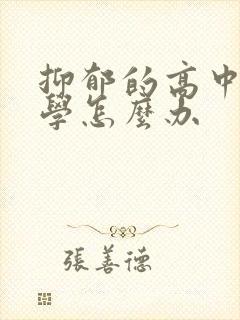 抑郁的高中
學怎麼办
張善德